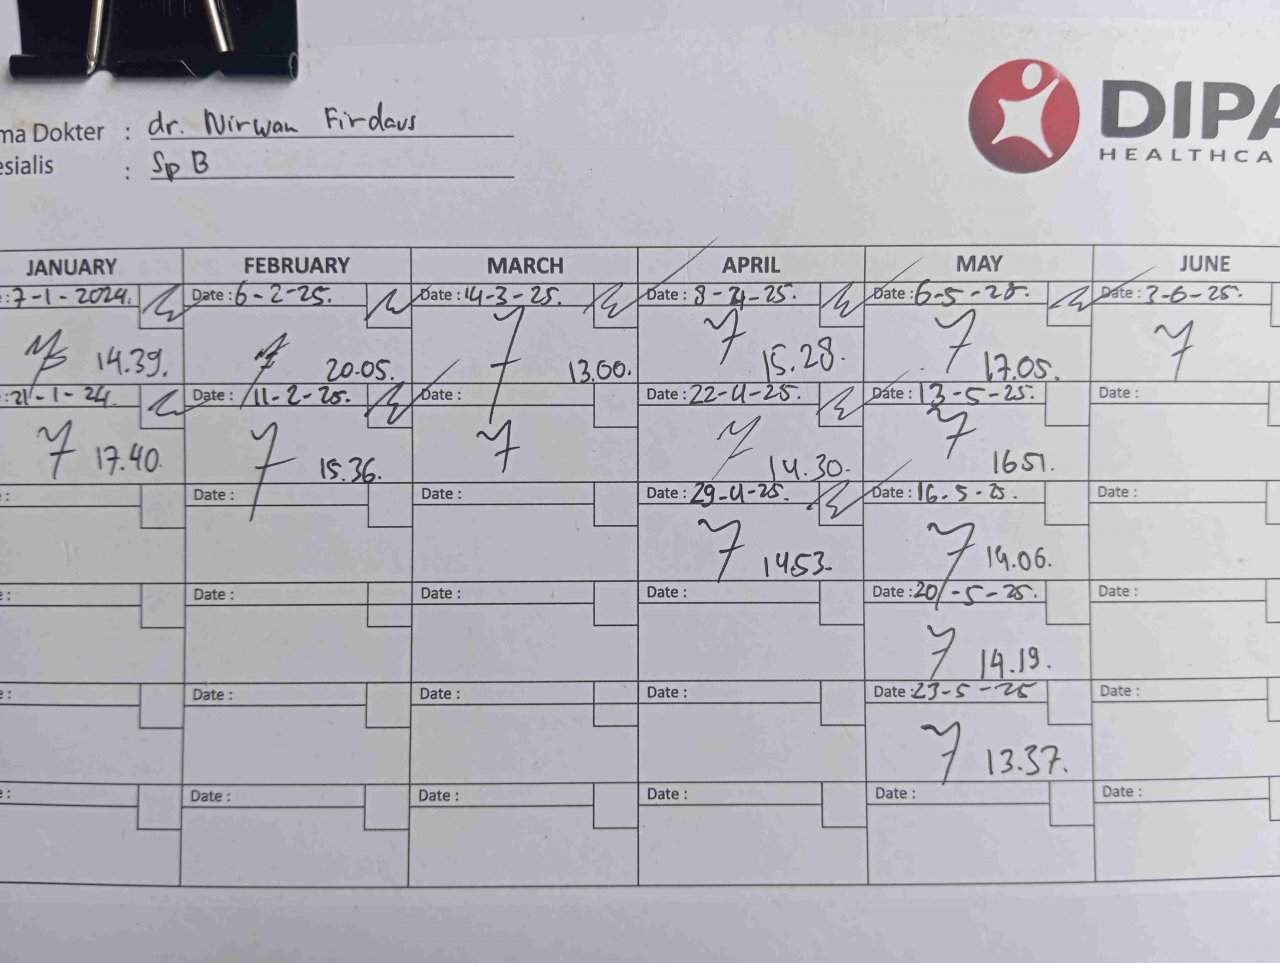 ma Dokter : dr. Nirwan Firdaus
esialis : Sp B
DIPA
HEALTHCA
JANUARY FEBRUARY MARCH APRIL MAY JUNE
: 7-1-2024. Date : 6-2-25. Date : 14-3-25. Date : 8-4-25. Date : 6-5-25. Date : 3-6-25.
14.39. 20.05. 13.00. 15.28. 17.05.
: 21-1-24. Date : 11-2-25. Date : Date : 22-4-25. Date : 13-5-25. Date :
17.40. 15.36. 14.30. 1651.
e : Date : Date : Date : 29-4-25. Date : 16-5-25. Date :
1453. 14.06.
e : Date : Date : Date : Date : 20-5-25. Date :
14.19.
e : Date : Date : Date : Date : 23-5-25 Date :
13.37.
e : Date : Date : Date : Date : Date :